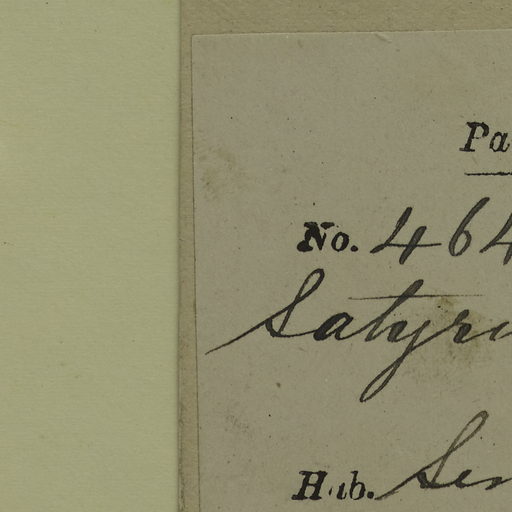 Pa
No. 464
Satyri
Hab. Sen